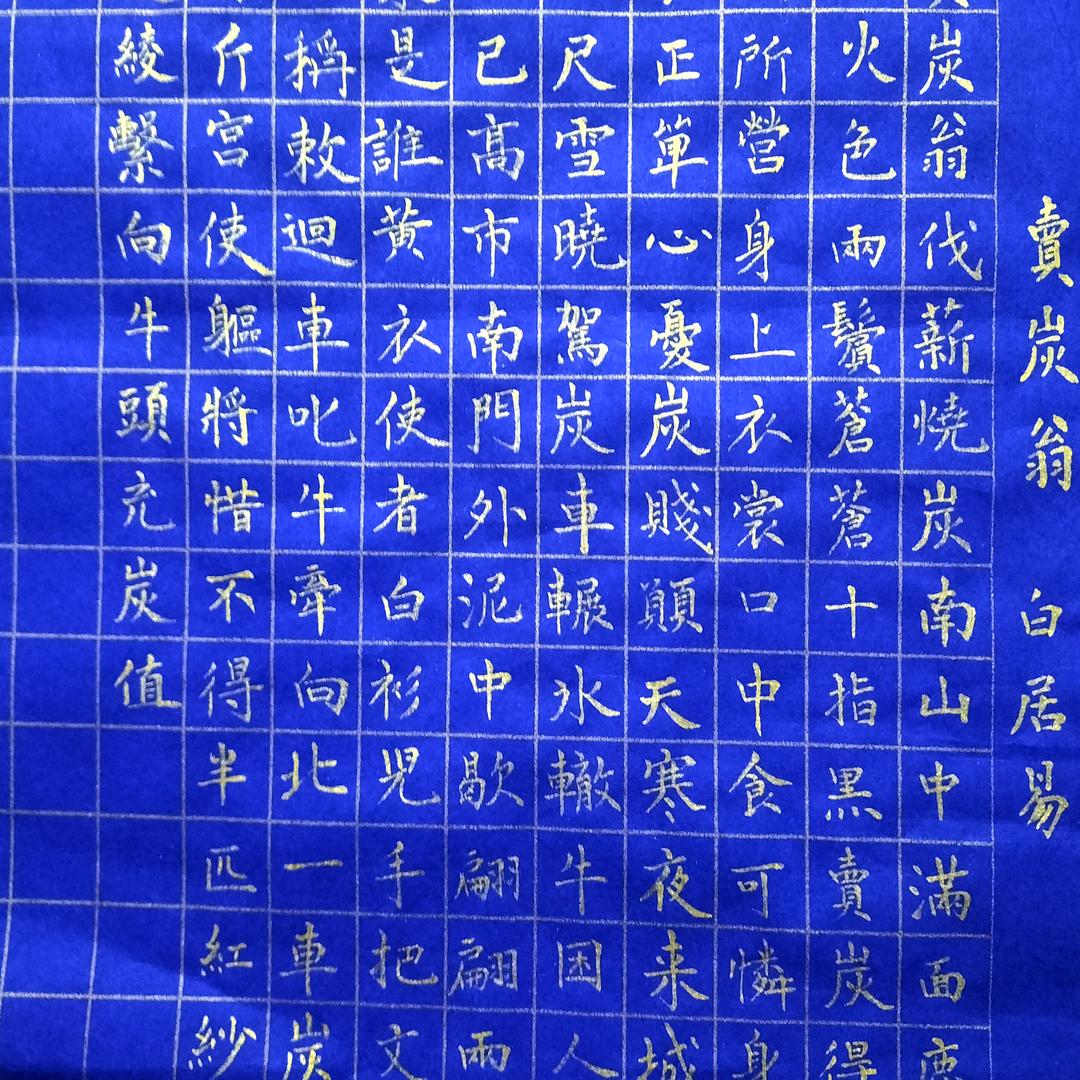 賣炭翁 白居易
炭翁伐薪燒炭南山中滿面
火色兩鬢蒼蒼十指黑賣炭得
所營身上衣裳口中食可憐身
正單心憂炭賤願天寒夜来城
尺雪曉駕炭車輾氷轍牛困人
已高市南門外泥中歇翩翩兩
是誰黃衣使者白衫兒手把文
稱敕迴車叱牛牽向北一車炭
斤宮使軀將惜不得半匹紅紗
綾繫向牛頭充炭值